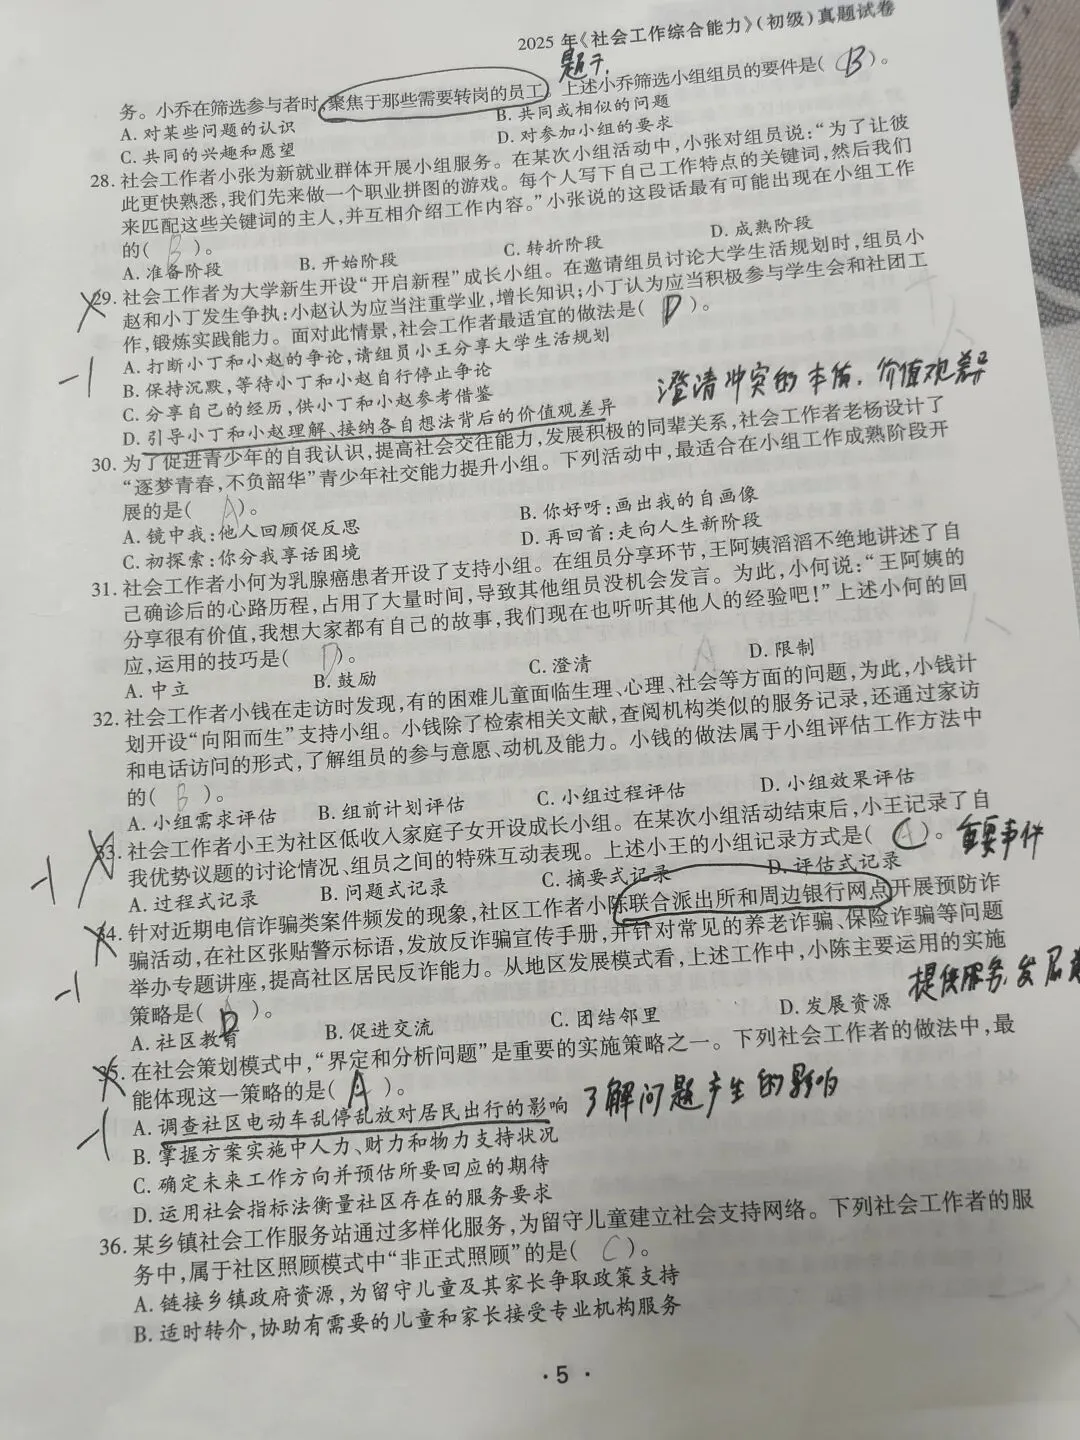 2025 年《社会工作综合能力》(初级)真题试卷
题干,
务。小乔在筛选参与者时,聚焦于那些需要转岗的员工。上述小乔筛选小组组员的要件是( B )。
A. 对某些问题的认识 B. 共同或相似的问题
C. 共同的兴趣和愿望 D. 对参加小组的要求
28. 社会工作者小张为新就业群体开展小组服务。在某次小组活动中,小张对组员说:“为了让彼
此更快熟悉,我们先来做一个职业拼图的游戏。每个人写下自己工作特点的关键词,然后我们
来匹配这些关键词的主人,并互相介绍工作内容。”小张说的这段话最有可能出现在小组工作
的( B )。
A. 准备阶段 B. 开始阶段 C. 转折阶段 D. 成熟阶段
29. 社会工作者为大学新生开设“开启新程”成长小组。在邀请组员讨论大学生活规划时,组员小
赵和小丁发生争执:小赵认为应当注重学业,增长知识;小丁认为应当积极参与学生会和社团工
作,锻炼实践能力。面对此情景,社会工作者最适宜的做法是( D )。
A. 打断小丁和小赵的争论,请组员小王分享大学生活规划
-1
B. 保持沉默,等待小丁和小赵自行停止争论
C. 分享自己的经历,供小丁和小赵参考借鉴
澄清冲突的本质,价值观差异
D. 引导小丁和小赵理解、接纳各自想法背后的价值观差异
30. 为了促进青少年的自我认识,提高社会交往能力,发展积极的同辈关系,社会工作者老杨设计了
“逐梦青春,不负韶华”青少年社交能力提升小组。下列活动中,最适合在小组工作成熟阶段开
展的是( A )。
A. 镜中我:他人回顾促反思 B. 你好呀:画出我的自画像
C. 初探索:你分我享话困境 D. 再回首:走向人生新阶段
31. 社会工作者小何为乳腺癌患者开设了支持小组。在组员分享环节,王阿姨滔滔不绝地讲述了自
己确诊后的心路历程,占用了大量时间,导致其他组员没机会发言。为此,小何说:“王阿姨的
分享很有价值,我想大家都有自己的故事,我们现在也听听其他人的经验吧!”上述小何的回
应,运用的技巧是( D )。
A. 中立 B. 鼓励 C. 澄清 D. 限制
A
32. 社会工作者小钱在走访时发现,有的困难儿童面临生理、心理、社会等方面的问题,为此,小钱计
划开设“向阳而生”支持小组。小钱除了检索相关文献,查阅机构类似的服务记录,还通过家访
和电话访问的形式,了解组员的参与意愿、动机及能力。小钱的做法属于小组评估工作方法中
的( B )。
A. 小组需求评估 B. 组前计划评估 C. 小组过程评估 D. 小组效果评估
33. 社会工作者小王为社区低收入家庭子女开设成长小组。在某次小组活动结束后,小王记录了自
我优势议题的讨论情况、组员之间的特殊互动表现。上述小王的小组记录方式是( C )。 重要事件
-1
A. 过程式记录 B. 问题式记录 C. 摘要式记录 D. 评估式记录
34. 针对近期电信诈骗类案件频发的现象,社区工作者小陈联合派出所和周边银行网点开展预防诈
骗活动,在社区张贴警示标语,发放反诈骗宣传手册,并针对常见的养老诈骗、保险诈骗等问题
-1
举办专题讲座,提高社区居民反诈能力。从地区发展模式看,上述工作中,小陈主要运用的实施
策略是( D )。 提供服务,发展
A. 社区教育 B. 促进交流 C. 团结邻里 D. 发展资源
35. 在社会策划模式中,“界定和分析问题”是重要的实施策略之一。下列社会工作者的做法中,最
能体现这一策略的是( A )。
-1
A. 调查社区电动车乱停乱放对居民出行的影响 了解问题产生的影响
B. 掌握方案实施中人力、财力和物力支持状况
C. 确定未来工作方向并预估所要回应的期待
D. 运用社会指标法衡量社区存在的服务要求
36. 某乡镇社会工作服务站通过多样化服务,为留守儿童建立社会支持网络。下列社会工作者的服
务中,属于社区照顾模式中“非正式照顾”的是( C )。
A. 链接乡镇政府资源,为留守儿童及其家长争取政策支持
B. 适时转介,协助有需要的儿童和家长接受专业机构服务
· 5 ·